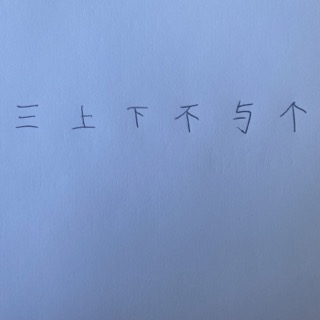 三上下不与个